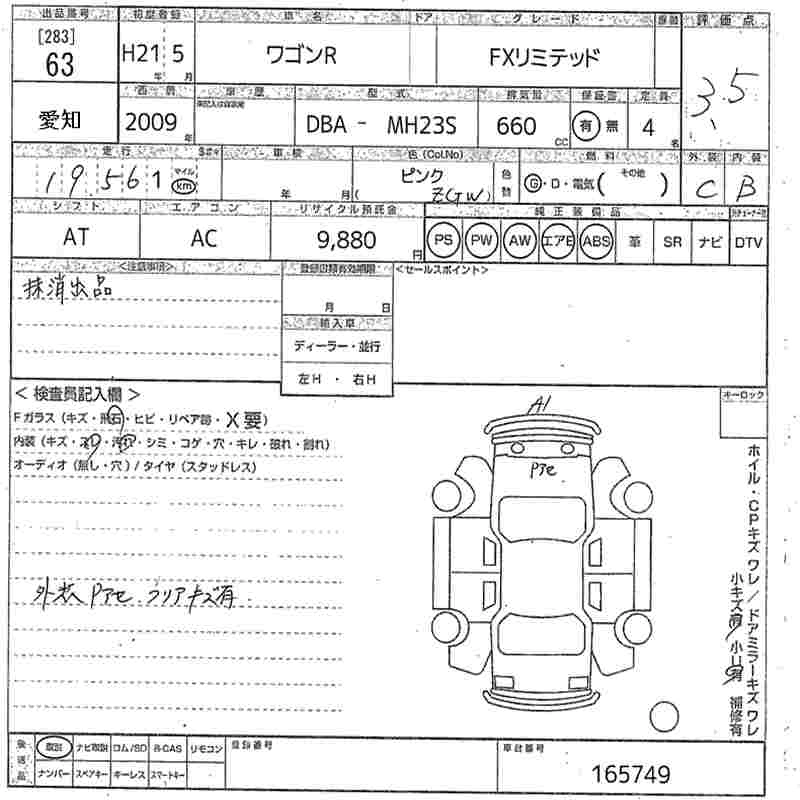 出品番号 初度登録 車名 ドア グレード 評価点
[283]
63 H21年 5月 ワゴンR FXリミテッド 3.5
西暦 車歴 型式 排気量 保証書 定員
愛知 2009年 DBA - MH23S 660cc 有 無 4名
走行 車検 色(Col.No) 燃料 外装 内装
19561 マイル km 年 月 ( ピンク ZGW) 色替 G・D・電気( その他 ) C B
シフト エアコン リサイクル預託金 純正装備品
AT AC 9,880円 PS PW AW エアB ABS 革 SR ナビ DTV
<注意事項> 登録書類有効期限 <セールスポイント>
抹消出品
月 日
輸入車
ディーラー・並行
左H ・ 右H
< 検査員記入欄 > キーロック
Fガラス(キズ・飛石・ヒビ・リペア跡・X要)
内装(キズ・スリ・汚れ・シミ・コゲ・穴・キレ・破れ・割れ)
オーディオ(無し・穴)/タイヤ(スタッドレス)
A1
外装 クリアキズ有
ホイル・CPキズ ワレ/ドアミラーキズ ワレ
小キズ有/小U有 補修有
後送品 取説 ナビ取説 ロム/SD B-CAS リモコン 登録番号 車台番号
ナンバー スペアキー キーレス スマートキー 165749